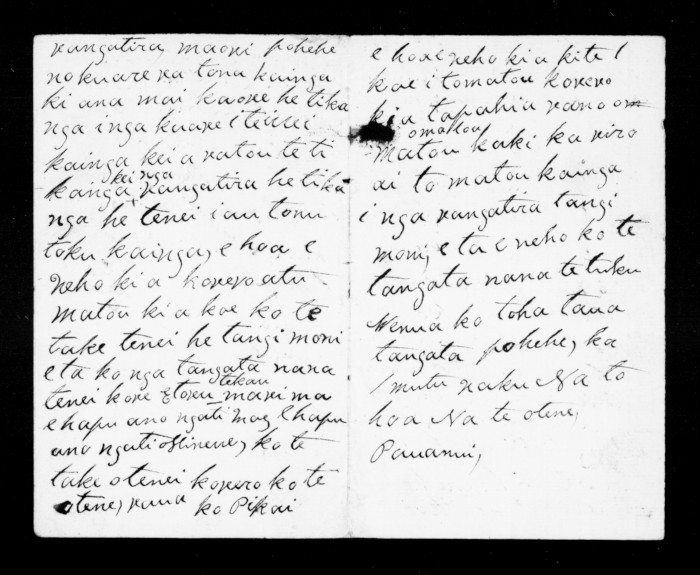 rangatira, maori pohehe
nokuare ra tona kainga
ki ana mai kaore he tika
nga i nga kuare i teitei
kainga kei a ratou te ti
kainga kei nga rangatira he tika
nga he tenei i au tonu
toku kainga, e hoa e
neho ki a korero atu
matou ki a koe ko te
take tenei he tangi moni
eta ko nga tangata nana
tenei kore E toru tekau mari ma
e hapu ano ngati E hapu
ano ngatiohinene, ko te
take o tenei korero ko te
otene, raua ko Pikai
e hoa e neho ki a kite
koe i to matou korero
kia tapahia rano
o matou
matou kaki ka riro
ai to matou kainga
i nga rangatira tangi
moni, e ta e neho ko te
tangata nana te tuku
Wenua ko toha taua
tangata pohehe, ka
mutu naku Na to
hoa Na te otene,
Pauamu,